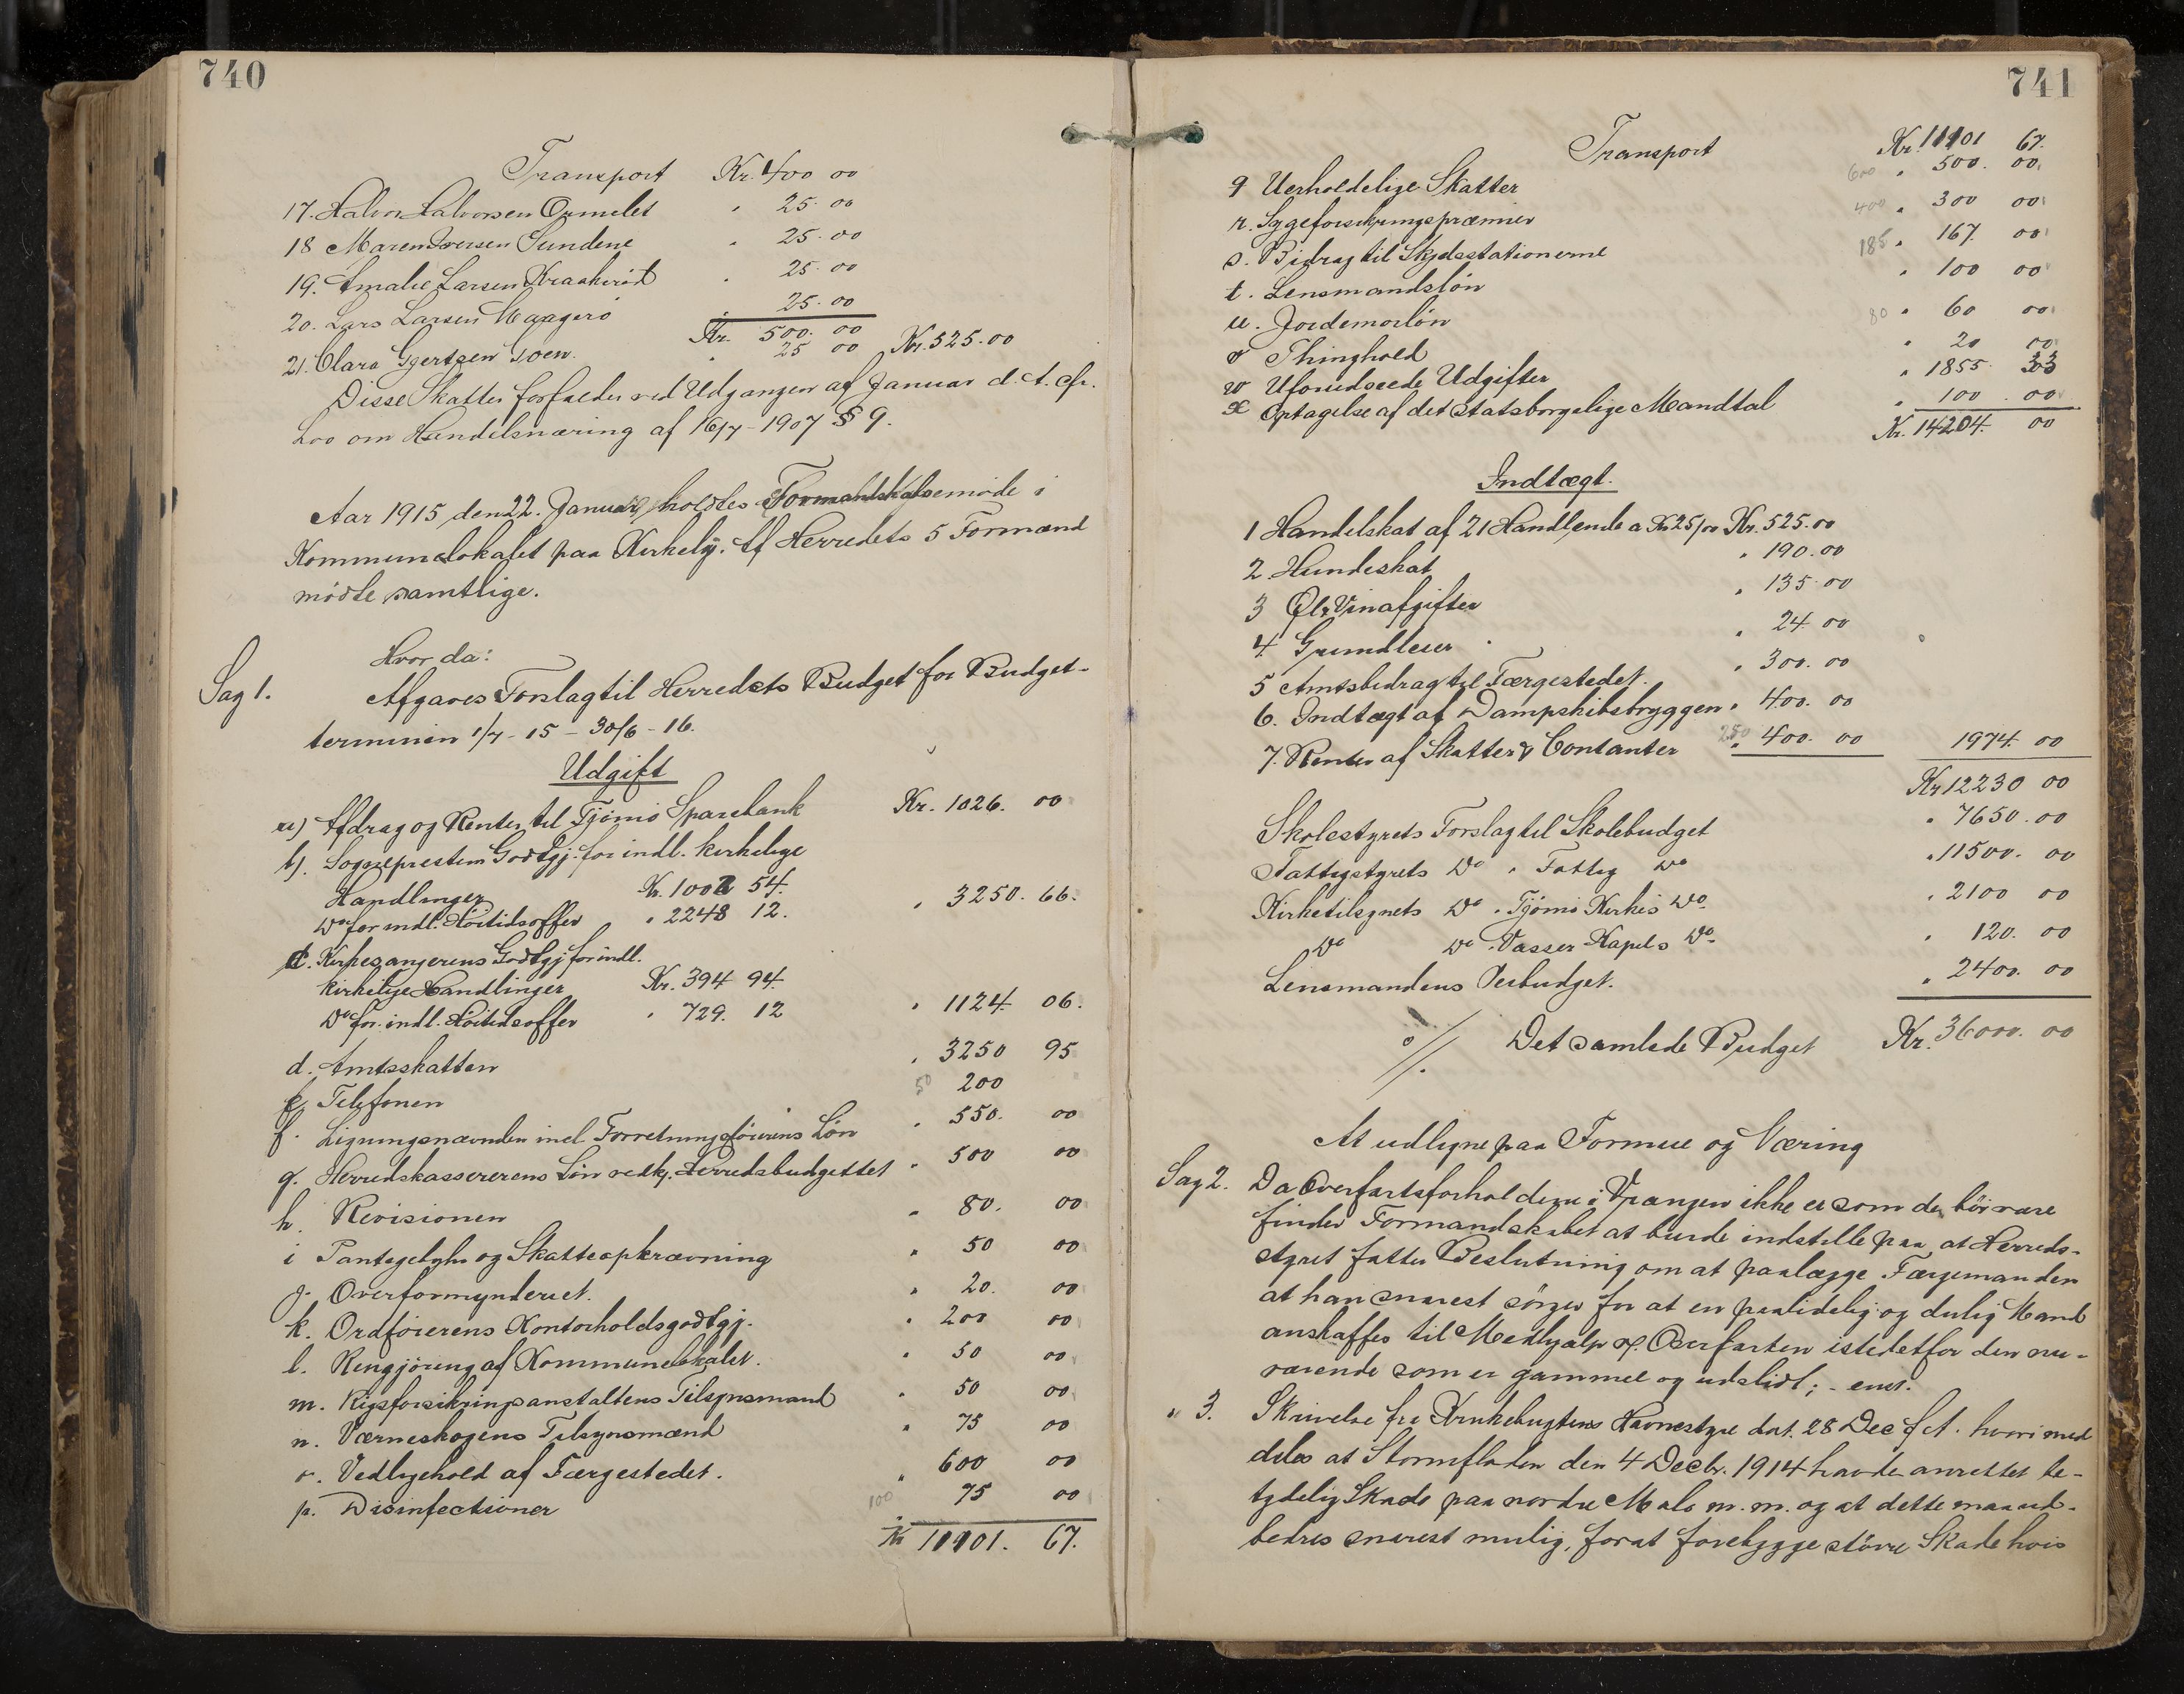 740
Transport Kr. 400 00
17. Halvor Halvorsen Ormelet " 25.00
18 Maren Iversen Sundene " 25.00
19. Amalie Larsen Kraakeröd " 25.00
20. Lars Larsen Maagerö " 25.00
Kr. 500. 00
21. Clara Gjertsen Goen. " 25 00 Kr. 525.00
Disse Skatter forfalder ved Udgangen af Januar d. A. cfr.
Lov om Handelsnæring af 16/7 - 1907 § 9.
Aar 1915 den 22. Januar holdtes Formandskabsmøde i
Kommunelokalet paa Kirkely. Af Herredets 5 Formænd
mødte samtlige.
Hvor da:
Sag 1. Afgaves Forslag til Herredets Budget for Budget-
terminen 1/7 - 15 - 30/6 - 16.
Udgift
a) Afdrag og Renter til Tjömö Sparebank Kr. 1026. 00
b). Sogneprestens Godtgj. for indl. kirkelige
Handlinger Kr. 1002 54.
Do for indl. Höitidsoffer " 2248 12. " 3250. 66.
c. Kirkesangerens Godtgj for indl.
kirkelige Handlinger Kr. 394 94
Do for. indl. Höitidsoffer " 729. 12 " 1124. 06.
d. Amtsskatten " 3250 95
e. Telefonen 50 200
f. Ligningsnævnden incl. Forretningsförerens Lön " 550. 00
g. Herredskassererens Lön vedk. Herredsbudgettet " 500 00
h. Revisionen " 80. 00
i Pantegebyhr og Skatteopkrævning " 50 00
j. Overformynderiet. " 20. 00
k. Ordförerens Kontorholdsgodtgj. " 200 00
l. Rengjöring af Kommunelokalet. " 50 00
m. Rigsforsikringsanstaltens Tilsynsmand " 50 00
n. Værneskogens Tilsynsmænd " 75 00
o. Vedligehold af Færgestedet. " 600 00
p. Disinfectioner 100 " 75 00
Kr 11101. 67.
741
Transport Kr. 11101 67.
q Uerholdelige Skatter 600 " 500. 00
r. Sygeforsikringspræmier 400 " 300 00
s. Bidrag til Skydsstationerne 185 " 167. 00
t. Lensmandslön " 100 00
u. Jordemorlön 80 " 60 00
v Thinghold " 20 00
w Uforudseede Udgifter " 1855. 33
x Optagelse af det Statsborgelige Mandtal " 100. 00
Kr. 14204. 00
Indtægt.
1 Handelskat af 21 Handlende a Kr 25/00 Kr. 525.00
2 Hundeskat " 190.00
3 Öl & Vinafgifter " 135.00
4. Grundleier " 24 00
5 Amtsbidrag til Færgestedet. " 300. 00
6. Indtægt af Dampskibsbryggen " 400. 00
7. Renter af Skatter & Contanter 250 " 400. 00 1974. 00
Kr 12230 00
Skolestyrets Forslag til Skolebudget " 7650. 00
Fattigstyrets Do " Fattig Do " 11500. 00
Kirketilsynets Do " Tjömö Kirkes Do " 2100 00
Do Do " Vasser Kapels Do " 120. 00
Lensmandens Veibudget. " 2400. 00
% Det samlede Budget Kr. 36000. 00
At udligne paa Formue og Næring
Sag 2. Da Overfartsforholdene i Vrangen ikke er som de bör være
finder Formandskabet at burde indstille paa, at Herreds-
styret fatter Beslutning om at paalægge Færgemanden
at han snarest sörger for at en paalidelig og dulig Mand
anskaffes til Medhjælp ved Overfarten istedetfor den nu-
værende som er gammel og udslidt; - enst.
" 3. Skrivelse fra Krukebugtens Havnestyre dat. 28 Dec f. A. hvori med
deles at Stormfloden den 4 Decbr. 1914 havde anrettet be-
tydelig Skade paa nordre Molo m. m. og at dette maa ud-
bedres snarest mulig, forat forebygge större Skade hvis